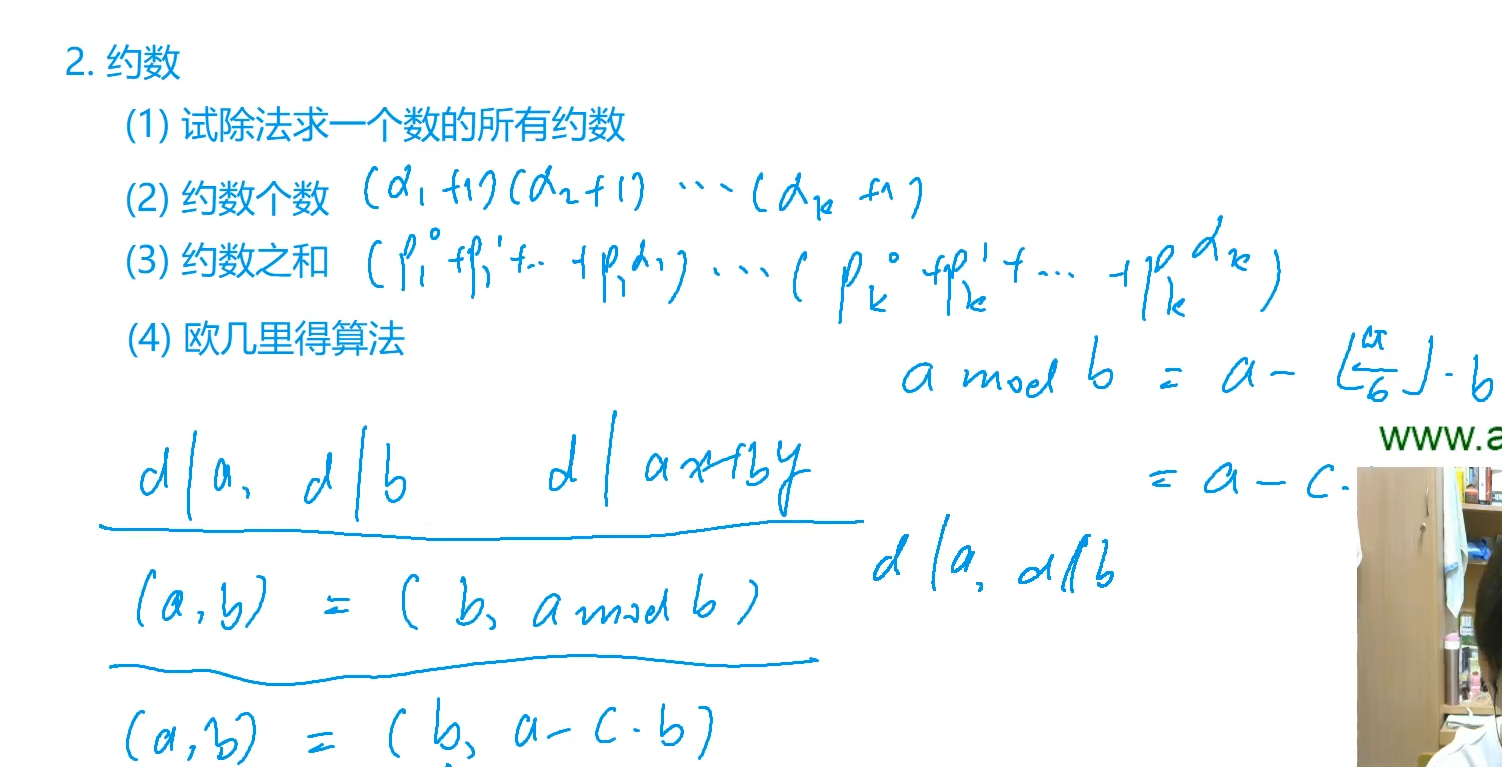 2. 约数
(1) 试除法求一个数的所有约数
(2) 约数个数 (α₁+1)(α₂+1)⋯(αₖ+1)
(3) 约数之和 (p₁⁰+p₁¹+⋯+p₁^α₁)⋯(pₖ⁰+pₖ¹+⋯+pₖ^αₖ)
(4) 欧几里得算法
a mod b = a - ⌊a/b⌋·b
www.a
d|a, d|b d|ax+by
= a - c·
d|a, d|b
(a,b) = (b, a mod b)
(a,b) = (b, a-c·b)